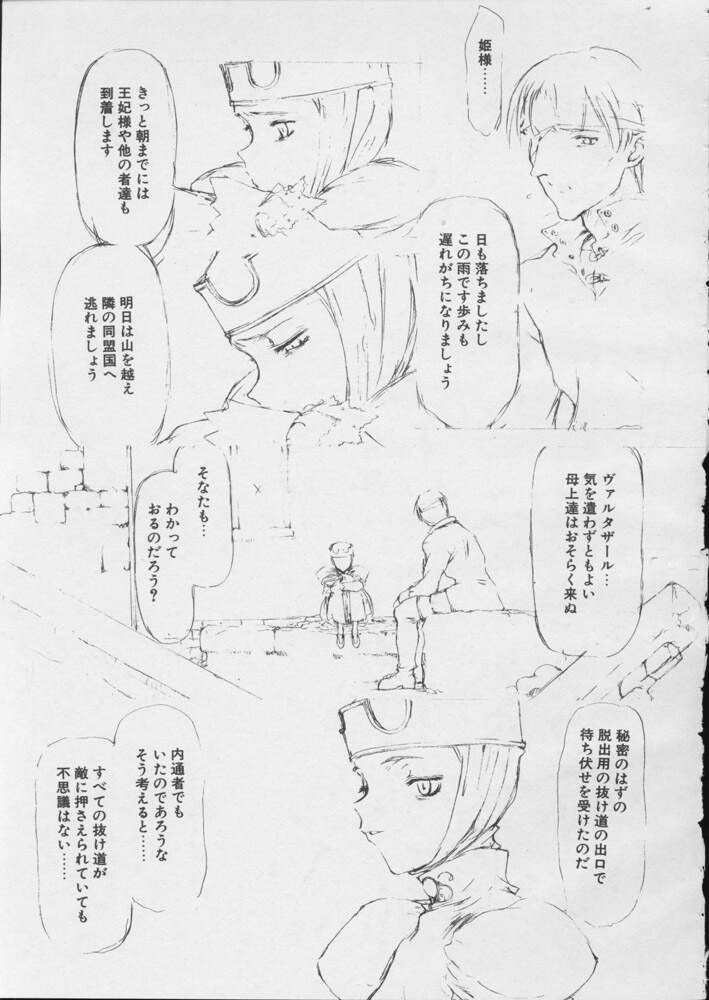 姫様……
日も落ちましたし
この雨です歩みも
遅れがちになりましょう
きっと朝までには
王妃様や他の者達も
到着します
明日は山を越え
隣の同盟国へ
逃れましょう
ヴァルタザール…
気を遣わずともよい
母上達はおそらく来ぬ
そなたも…
わかって
おるのだろう？
秘密のはずの
脱出用の抜け道の出口で
待ち伏せを受けたのだ
内通者でも
いたのであろうな
そう考えると……
すべての抜け道が
敵に押さえられていても
不思議はない……